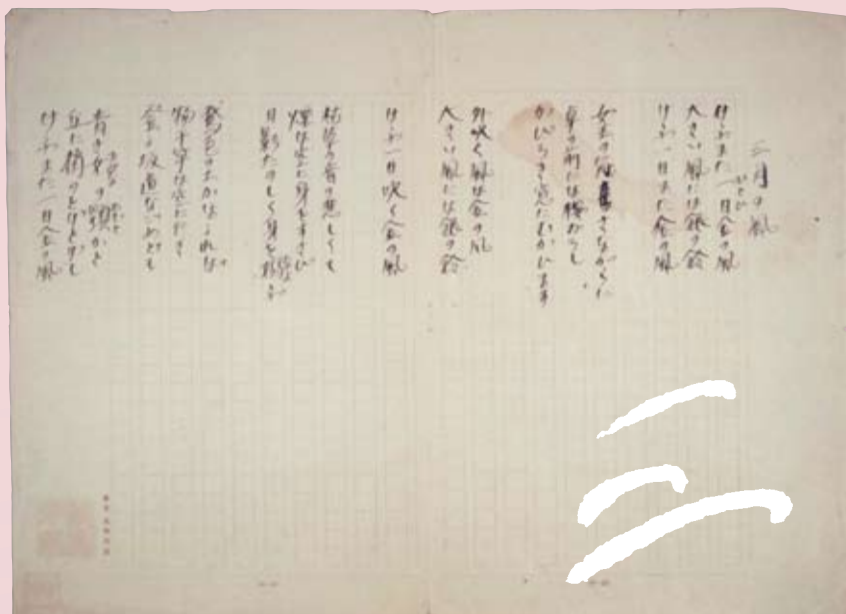 月の風
けふまた一日金の風
大きい風には銀の鈴
けふ一日また金の風
女王の冠さながらに
卓の前には腰か
かびろき窓にむかひます
外吹く風は金の風
大きい風には銀の鈴
けふ一日吹く金の風
枯草の音の悲しくも
煙は空に身をすさび
日影たのしく身を
鳶色の土かほれば
物干竿は空に
登る坂道なごめども
青き女の顎かと
丘に梢のとげとげし
けふまた一日金の風